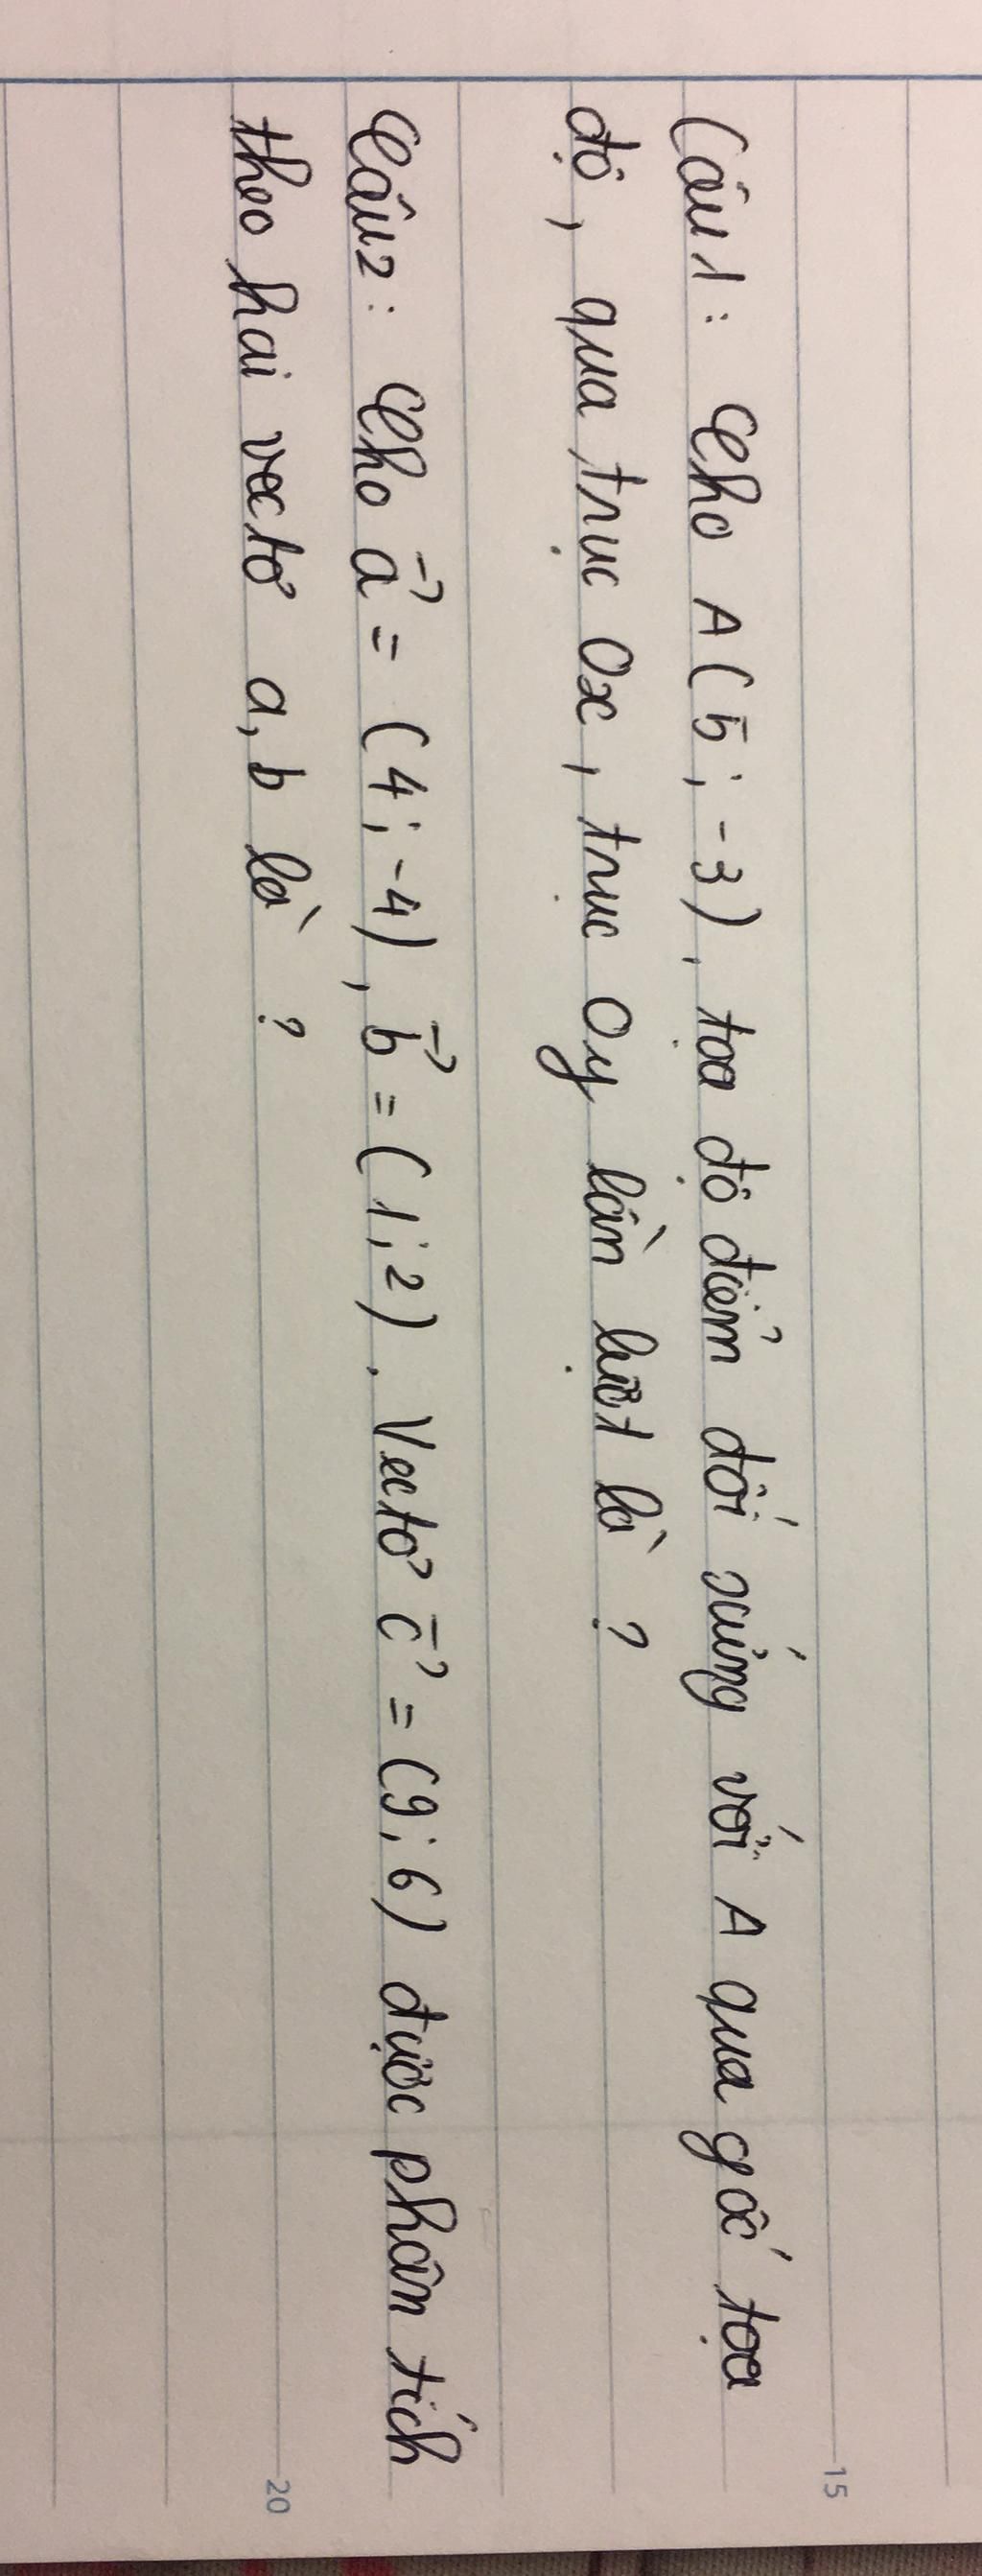 Câu 1 : Cho A ( 5 ; -3 ) , tọa độ điểm đối xứng với A qua gốc tọa
độ , qua trục Ox , trục Oy lần lượt là ?
Câu 2 : Cho a⃗ = ( 4 ; -4 ) , b⃗ = ( 1 ; 2 ) . Vectơ c⃗ = ( 9 ; 6 ) được phân tích
theo hai vectơ a, b là ?
15
20